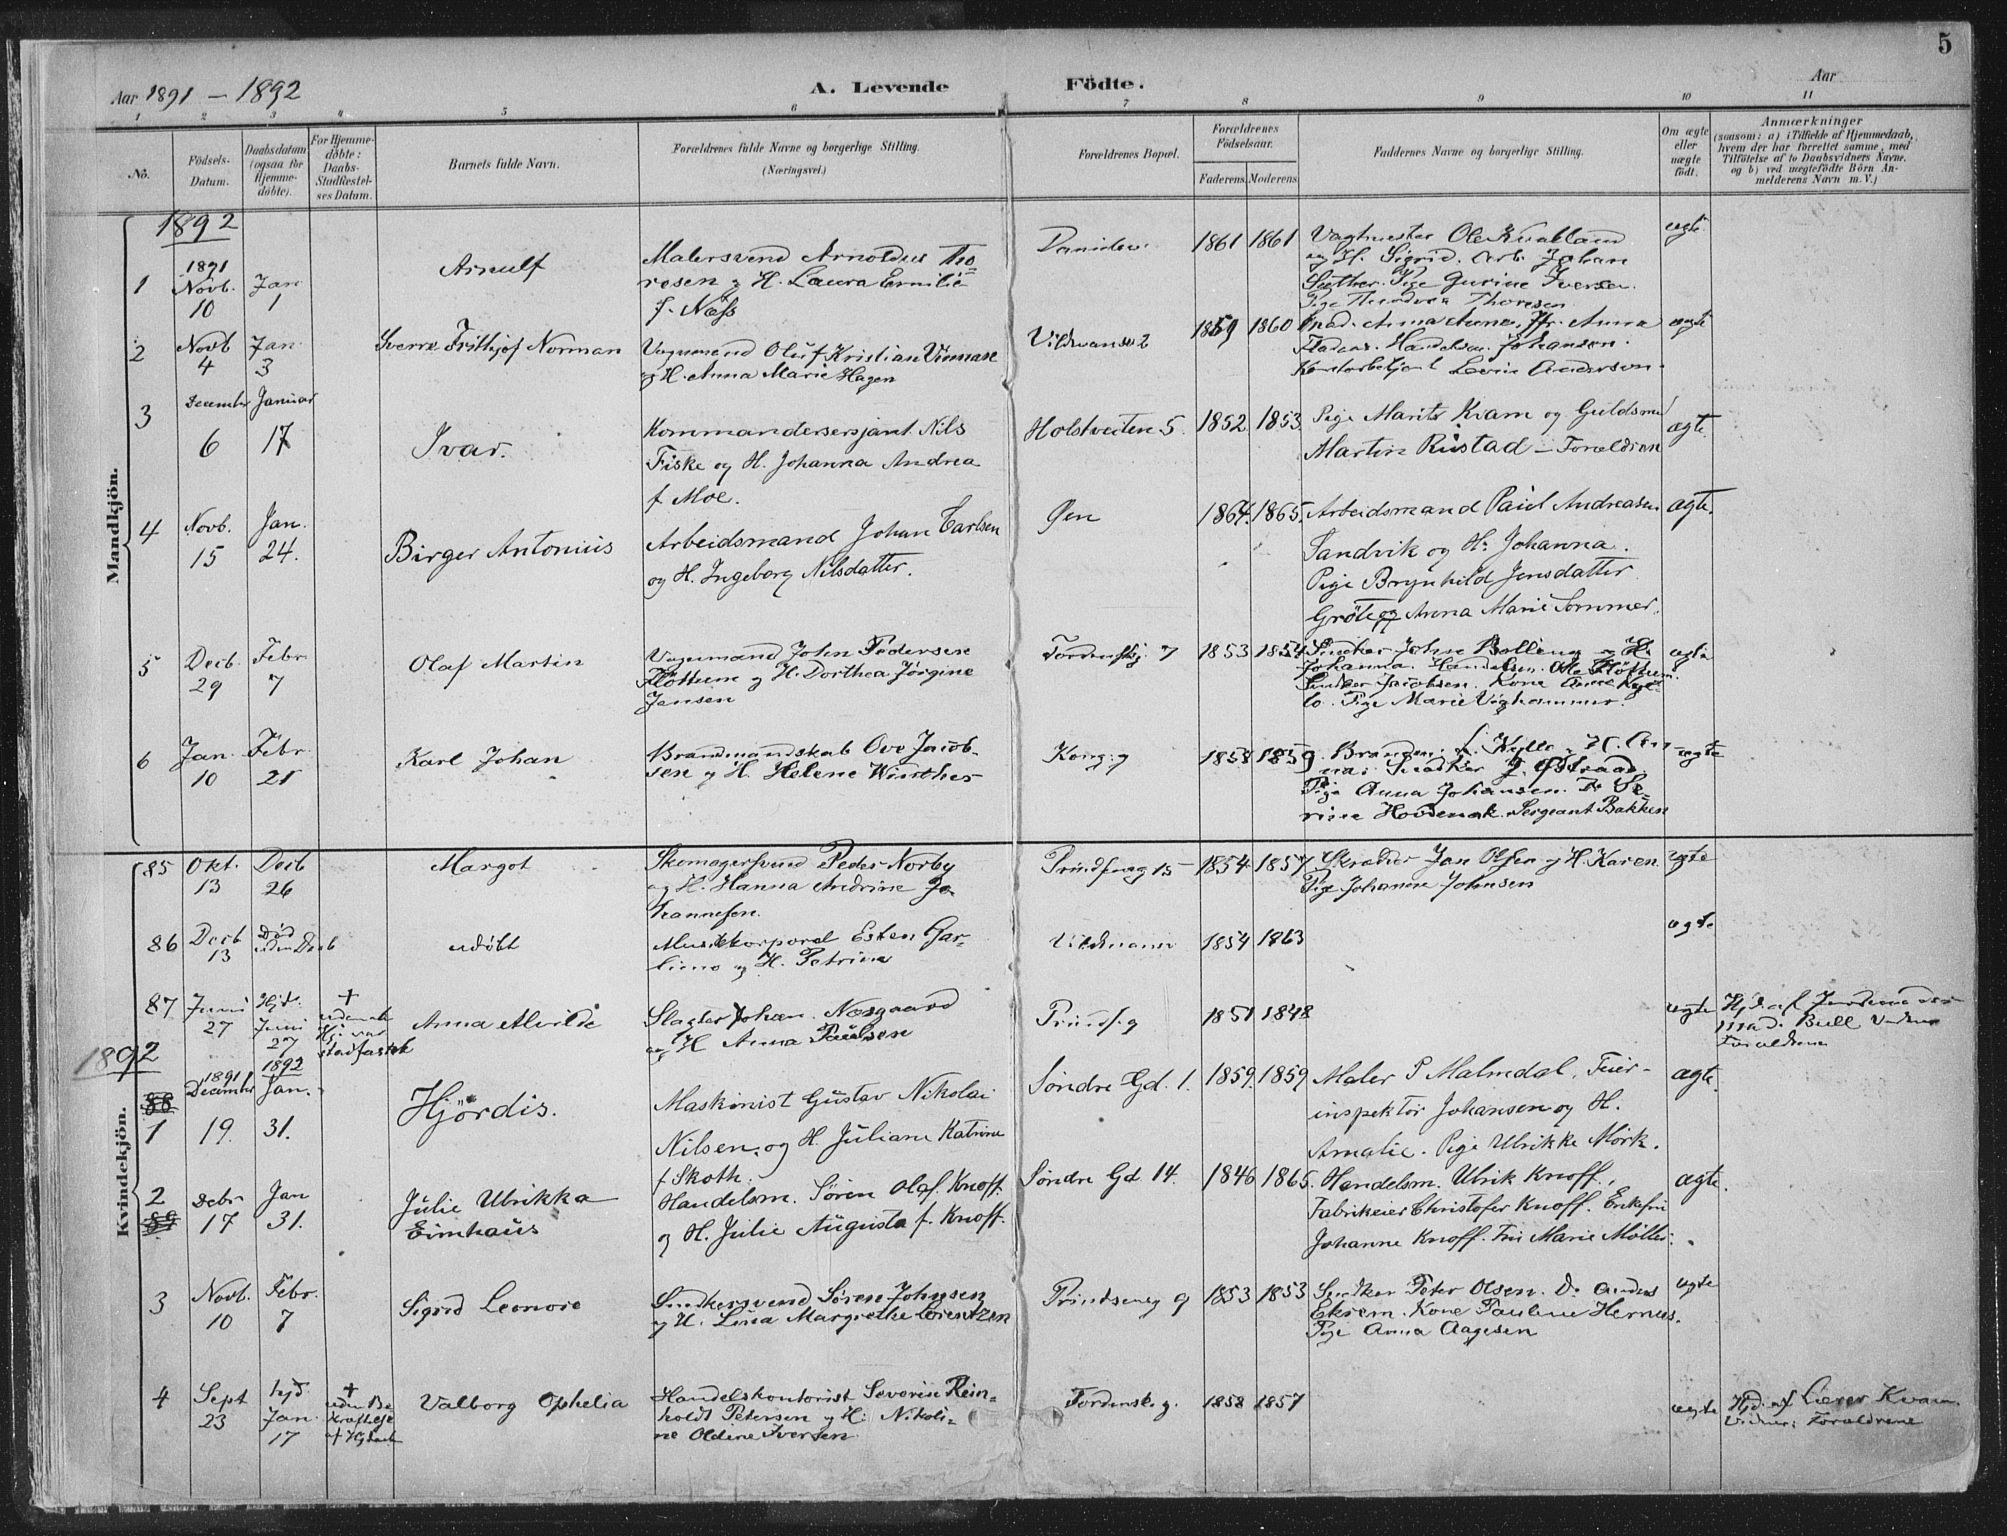 5
Aar 1891 – 1892
A. Levende Födte.
Aar
1 2 3 4 5 6 7 8 9 10 11
No.
Födsels-Datum.
Daabsdatum (ogsaa for Hjemme-döbte).
For Hjemme-döbte: Daabs-Stadfæstel-ses Datum.
Barnets fulde Navn.
Forældrenes fulde Navne og borgerlige Stilling.
(Næringsvei.)
Forældrenes Bopæl.
Forældrenes Födselsaar.
Faderens Moderens
Faddernes Navne og borgerlige Stilling.
Om ægte eller uægte födt.
Anmærkninger
(saasom: a) i Tilfælde af Hjemmedaab, hvem der har forrettet samme, med Tilföielse af to Daabsvidners Navne, og b) ved uægtefödte Börn Anmelderens Navn m. V.)
Mandkjön.
1892
1 1891 Novb. 10 Jan 1 Arnulf
Malersvend Arnoldus Tho-
resen og H. Laura Emilie
f. Næss
1861 1861
og H. Sigrid. Arb. Johan
Sæther. Pige Gurine Iversen.
Pige Thoresen
ægte
2 Novb 4 Jan. 3 Sverre Frithjof Norman
Vognmand Oluf Kristian
og H. Anna Marie Hagen
1859 1860
Johansen.
Andersen.
ægte
3 December 6 Januar 17 Ivar.
Kommandersersjant Nils
Fiske og H. Johanna Andrea
f Moe.
Holstveiten 5. 1852. 1853.
Pige Marits Kvam og Guldsmed
Martin Rustad – Forældrene
ægte.
4 Novb. 15 Jan. 24. Birger Antonius
Arbeidsmand Johan Carlsen
og H. Ingeborg Nilsdatter.
Öen 1864. 1865.
Arbeidsmand Paul Andreasen
Sandvik og H. Johanna.
Pige Brynhild Jensdatter
Gröte og Anna Marie Sommer.
ægte.
5 Decb. 29 Febr. 7 Olaf Martin
Vognmand John Pedersen
Flöttum og H. Dorthea Jörgine
Jensen
Tordenskj. 7 1853 1854
Johanna. Handelsm. Ole Flöttum.
Snedker Jacobsen. Kone
Pige Marie Vighammer.
ægte
6 Jan. 10 Febr. 21 Karl Johan
Brandmandskab Ove Jacob-
sen og H. Helene Winther
Kong.g 1858 1859
Pige Anna Johansen.
Sergeant Bakken
ægte
Kvindekjön.
85 Okt. 13 Decb 26 Margot
Skomagersvend Peder Norby
og H. Hanna Andrine Jo-
hannesen.
Prindseng 15 1854 1857
Skræder Jan Olsen og H. Karen
Pige Johanne Johnsen
ægte
86 Decb 13 Död uden Daab udöbt
Musikkorporal Esten Gar-
og H. Petrine
Vildmann 1854 1863
ægte
87 Juni 27 Hjd. Juni 27
+
Hj. var stadfæstet
Anna Alvilde
Slagter Johan Næsgaard
og H Anna Paulsen
Prinds.g 1851 1848
ægte
Hjd. af Jordemoder
Mad. Bull Vidner
Forældrene
1892
88 1 1891 December 19. 1892 Jan. 31. Hjördis.
Maskinist Gustav Nikolai
Nilsen og H. Juliane Katrine
f Skoth.
Söndre Gd. 1. 1859. 1859
Maler P Malmedal, Feier-
inspektör Johansen og H.
Amalie. Pige Ulrikke Mörk.
ægte.
2 89 Decbr 17 Jan 31. Julie Ulrikka
Eimhaus
Handelsm. Sören Olaf Knoff.
og H. Julie Augusta f. Knoff.
Söndre Gd 14. 1846 1865.
Handelsm. Ulrik Knoff,
Fabrikeier Christofer Knoff. Enkefru
Johanne Knoff. Fru Marie Möller.
ægte.
3 Novb. 10 Febr. 7 Sigrid Leonore
Snedkersvend Sören Johnsen
og H. Lina Margrethe Lorentzen
Prindseng 9 1853 1853
Snedker Peter Olsen. Do Anders
Ekrem. Kone Pauline Hernes.
Pige Anna Aagesen
ægte
4 Sept 23 hjd. Jan. 17
+
uden Be-
kræftelse
af Hjdaab
Valborg Ophelia
Handelskontorist Severin Rein-
holdt Petersen og H. Nikoli-
ne Oldine Iversen
Tordensk.g. 1858 1857
ægte
Hjd. af Lærer Kvam
Vidner: Forældrene